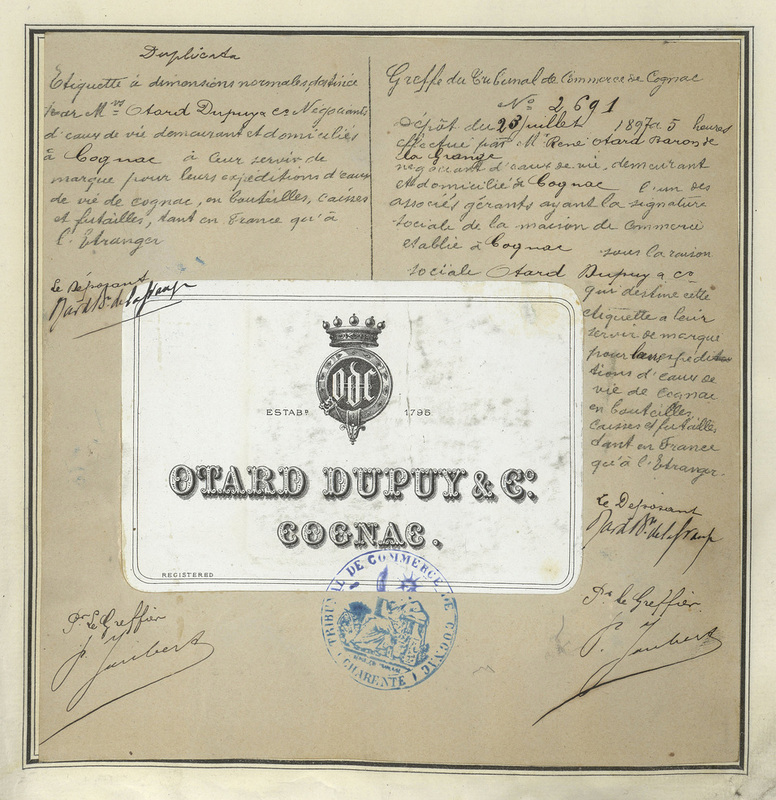 Duplicata
Etiquette à dimensions normales destinée
par M.rs Otard Dupuy & Co Négociants
d'eaux de vie demeurant et domiciliés
à Cognac à leur servir de
marque pour leurs expéditions d'eaux
de vie de cognac, en bouteilles, caisses
et futailles, tant en France qu'à
l'Etranger
Le Déposant
Greffe du Tribunal de Commerce de Cognac
No 2,691
Dépôt du 23 juillet 1897 à 5 heures
effectué par Mr René Otard Baron de
la Grange
négociant d'eaux de vie, demeurant
et domicilié à Cognac l'un des
associés gérants ayant la signature
sociale de la maison de commerce
etablie à Cognac sous la raison
sociale Otard Dupuy & Co
qui destine cette
étiquette a leur
servir de marque
pour leurs expédi-
tions d'eaux de
vie de Cognac
en bouteilles,
caisses et futailles,
tant en France
qu'à l'Etranger.
Le Déposant
ODC
ESTABD. 1795
OTARD DUPUY & Co.
COGNAC.
REGISTERED
TRIBUNAL DE COMMERCE DE COGNAC
CHARENTE
Pr Le Greffier
P. Joubert
Pr Le Greffier
P. Joubert